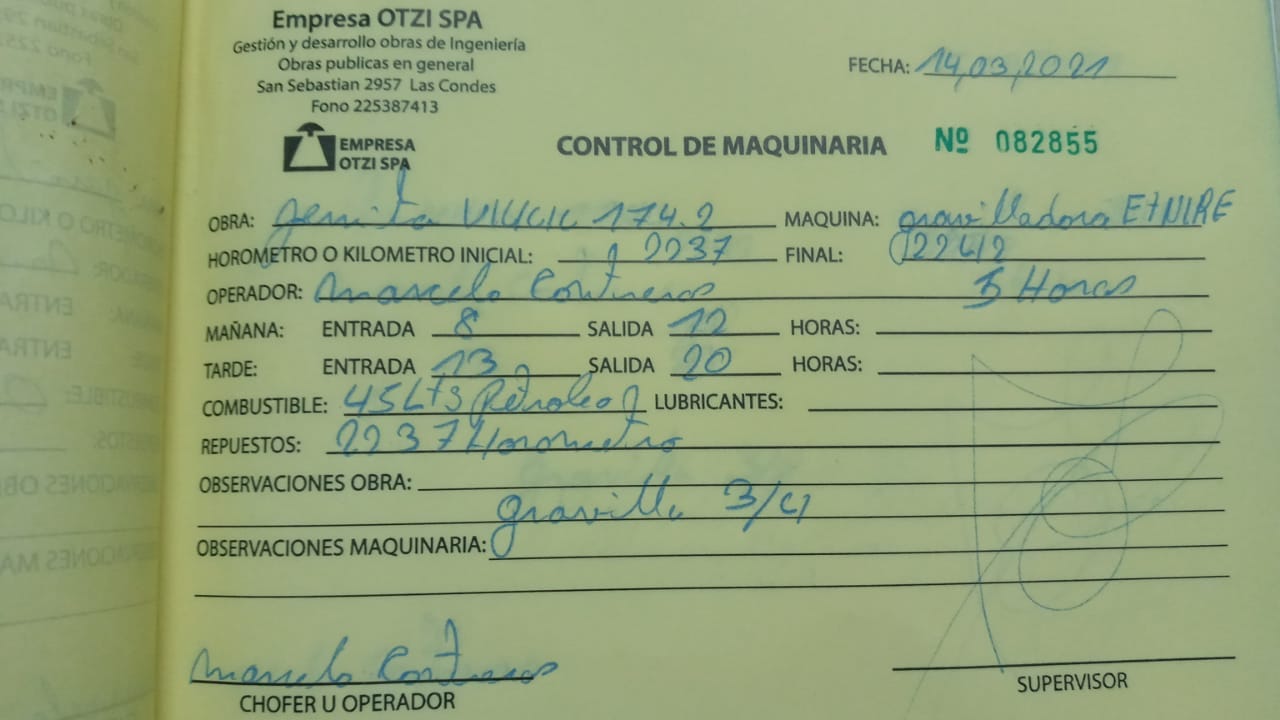 Empresa OTZI SPA
Gestión y desarrollo obras de Ingeniería
Obras publicas en general
San Sebastian 2957 Las Condes
Fono 225387413
FECHA: 14,03,2021
EMPRESA
OTZI SPA
CONTROL DE MAQUINARIA Nº 082855
OBRA: 174.2 MAQUINA: gravilladora ETNIRE
HOROMETRO O KILOMETRO INICIAL: 2237 FINAL: 2242
OPERADOR: Marcelo Contreras 5 Horas
MAÑANA: ENTRADA 8 SALIDA 12 HORAS:
TARDE: ENTRADA 13 SALIDA 20 HORAS:
COMBUSTIBLE: 45 Lts Petroleo LUBRICANTES:
REPUESTOS: 2237 Horometro
OBSERVACIONES OBRA:
gravilla 3/4
OBSERVACIONES MAQUINARIA:
Marcelo Contreras
CHOFER U OPERADOR
SUPERVISOR